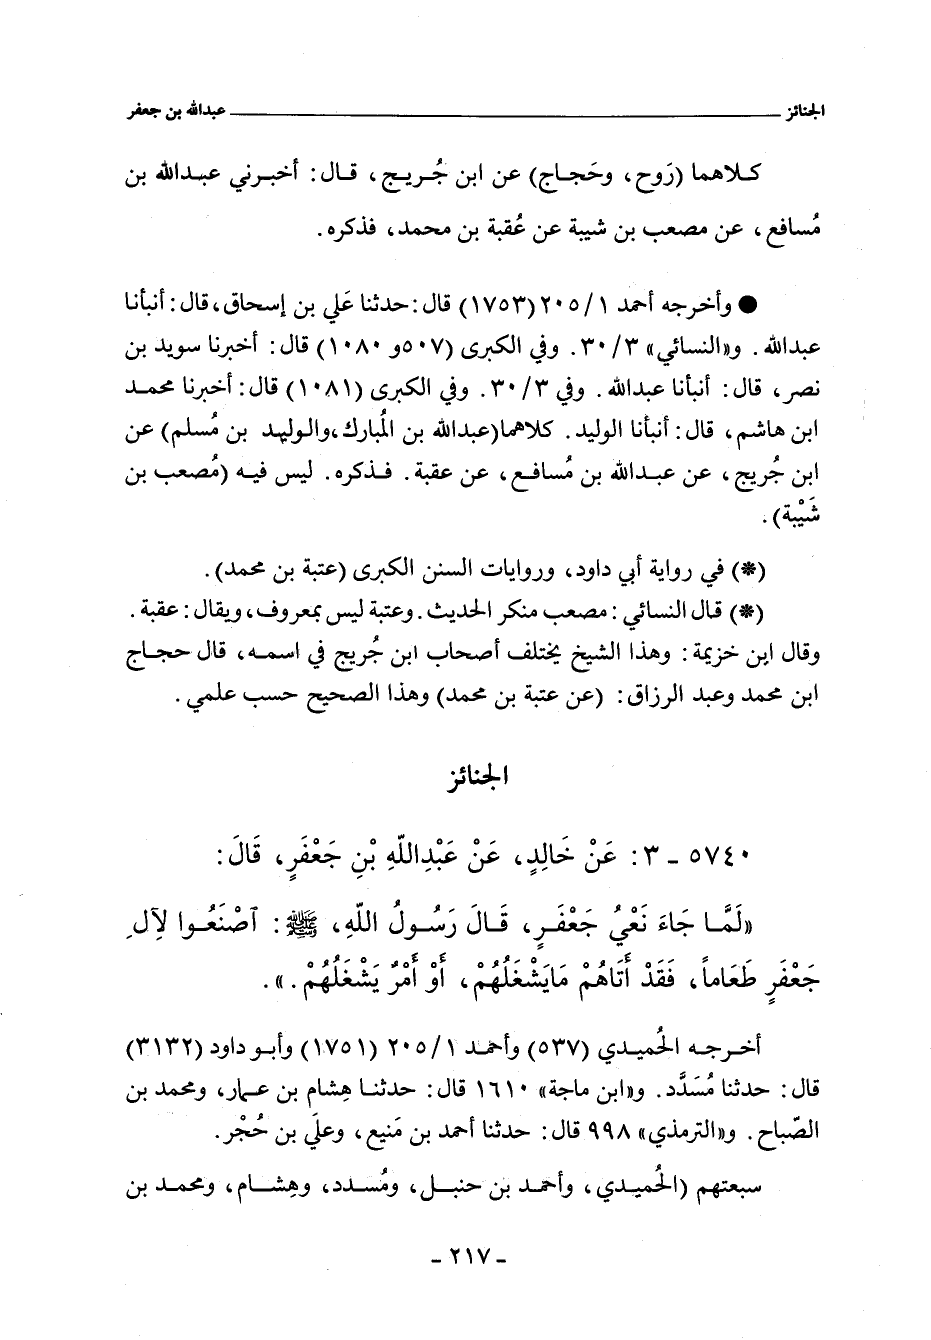 الجنائز ــــــــــ عبدالله بن جعفر
كلاهما (رَوح، وحَجاج) عن ابن جُريج، قال: أخبرني عبدالله بن
مُسافع، عن مصعب بن شيبة عن عُقبة بن محمد، فذكره.
● وأخرجه أحمد ٢٠٥/١ (١٧٥٣) قال: حدثنا عَلي بن إسحاق، قال: أنبأنا
عبدالله. و«النسائي» ٣٠/٣. وفي الكبرى (٥٠٧ و ١٠٨٠) قال: أخبرنا سويد بن
نصر، قال: أنبأنا عبدالله. وفي ٣٠/٣. وفي الكبرى (١٠٨١) قال: أخبرنا محمد
ابن هاشم، قال: أنبأنا الوليد. كلاهما (عبدالله بن المُبارك، والوليد بن مُسلم) عن
ابن جُريج، عن عبدالله بن مُسافع، عن عقبة. فذكره. ليس فيه (مُصعب بن
شَيْبة).
(*) في رواية أبي داود، وروايات السنن الكبرى (عتبة بن محمد).
(*) قال النسائي: مصعب منكر الحديث. وعتبة ليس بمعروف، ويقال: عقبة.
وقال ابن خزيمة: وهذا الشيخ يختلف أصحاب ابن جُريج في اسمه، قال حجاج
ابن محمد وعبد الرزاق: (عن عتبة بن محمد) وهذا الصحيح حسب علمي.
الجنائز
٥٧٤٠ ـ ٣: عَنْ خَالِدٍ، عَنْ عَبْدِاللّهِ بْنِ جَعْفَرٍ، قَالَ:
«لَمَّا جَاءَ نَعْيُ جَعْفَرٍ، قَالَ رَسُولُ اللّهِ، ﷺ: آصْنَعُوا لِآلِ
جَعْفَرٍ طَعَاماً، فَقَدْ أَتَاهُمْ مَايَشْغَلُهُمْ، أَوْ أَمْرٌ يَشْغَلُهُمْ.».
أخرجه الحُميدي (٥٣٧) وأحمد ٢٠٥/١ (١٧٥١) وأبو داود (٣١٣٢)
قال: حدثنا مُسَدَّد. و«ابن ماجة» ١٦١٠ قال: حدثنا هِشام بن عمار، ومحمد بن
الصّباح. و«الترمذي» ٩٩٨ قال: حدثنا أحمد بن مَنيع، وعلي بن حُجْر.
سبعتهم (الحُميدي، وأحمد بن حنبل، ومُسدد، وهِشام، ومحمد بن
ـ ٢١٧ ـ